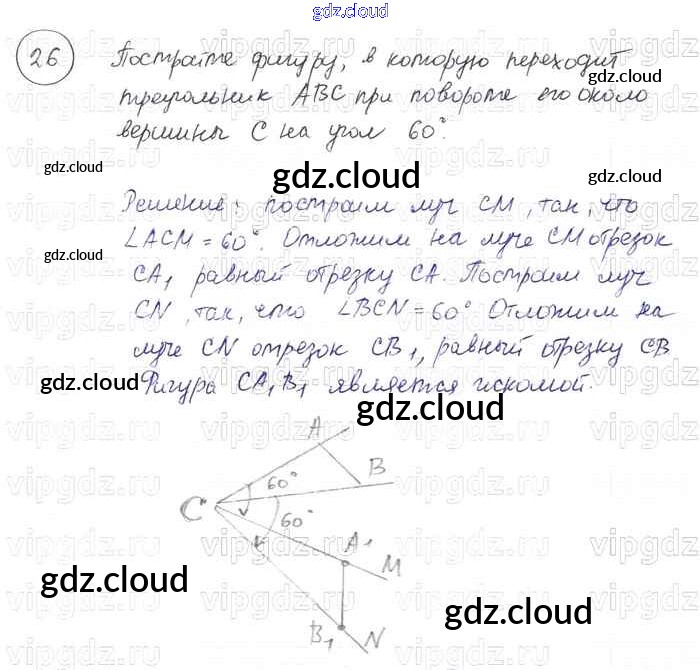 gdz.cloud
26 Постройте фигуру, в которую переходит
треугольник ABC при повороте его около
вершины C на угол 60°.
Решение: построим луч CM, так, что
∠ACM = 60°. Отложим на луче CM отрезок
CA₁ равный отрезку CA. Построим луч
CN, так, что ∠BCN = 60° Отложим на
луче CN отрезок CB₁, равный отрезку CB
Фигура CA₁B₁ является искомой.
A
B
60°
C
60°
A₁
M
B₁
N
gdz.cloud
gdz.cloud
gdz.cloud
gdz.cloud
gdz.cloud
gdz.cloud
gdz.cloud
gdz.cloud
gdz.cloud
gdz.cloud
vipgdz.ru